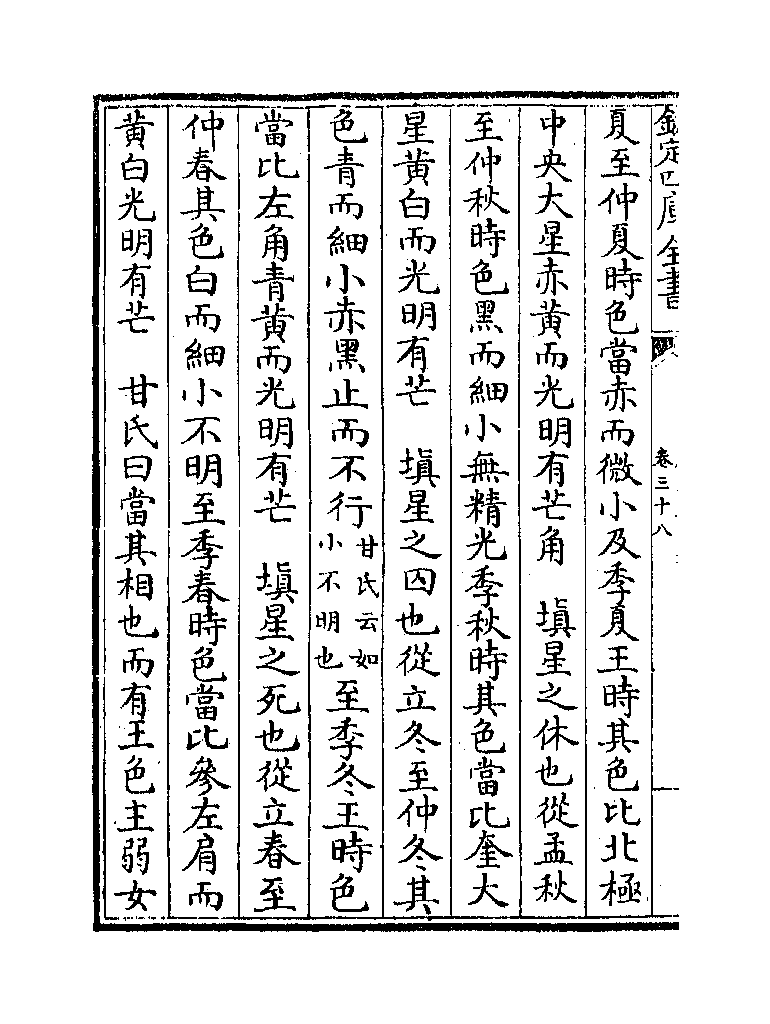 欽定四庫全書
卷三十八
夏至仲夏時色當赤而微小及季夏王時其色比北極
中央大星赤黄而光明有芒角　填星之休也從孟秋
至仲秋時色黑而細小無精光季秋時其色當比奎大
星黄白而光明有芒　填星之囚也從立冬至仲冬其
色青而細小赤黑止而不行甘氏云如小不明也至季冬王時色
當比左角青黄而光明有芒　填星之死也從立春至
仲春其色白而細小不明至季春時色當比參左肩而
黄白光明有芒　甘氏曰當其相也而有王色主弱女